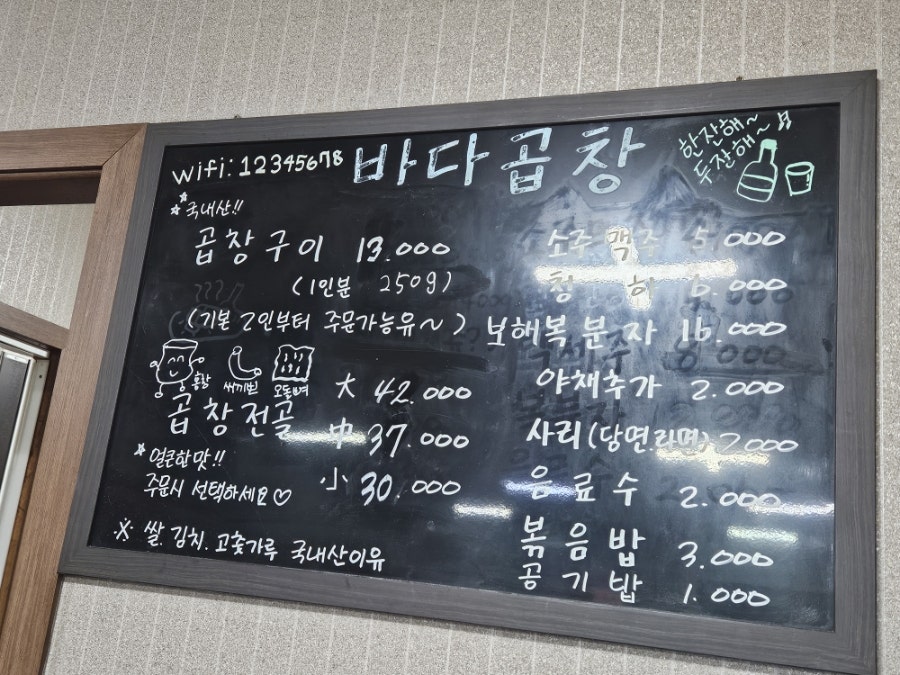 wifi: 12345678
바다곱창
한잔해~
두잔해~
국내산!!
곱창구이 13.000
(1인분 250g)
(기본 2인부터 주문가능유~)
막창 새끼보 오돌뼈
곱창전골
大 42.000
中 37.000
小 30.000
얼큰한맛!!
주문시 선택하세요♡
※. 쌀. 김치. 고춧가루 국내산이유
소주 맥주 5.000
청하 6.000
보해복분자 16.000
야채추가 2.000
사리(당면.라면) 2000
음료수 2.000
볶음밥 3.000
공기밥 1.000